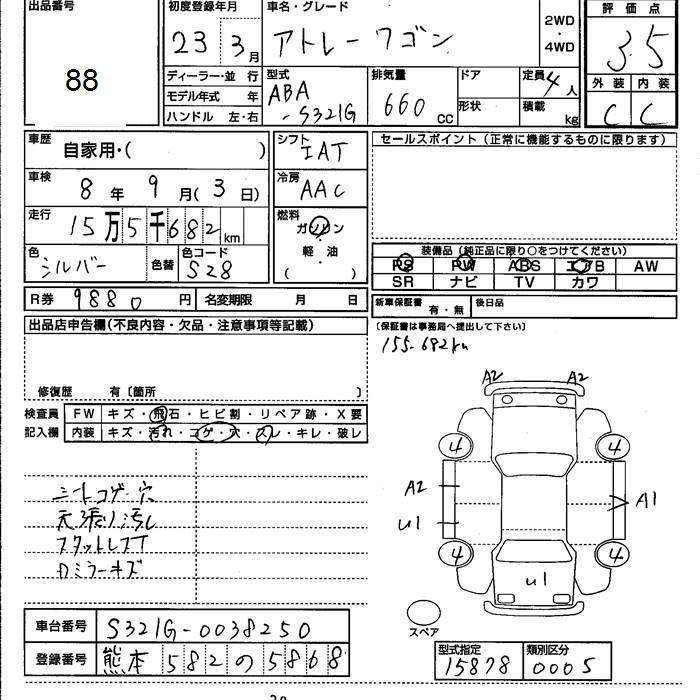 出品番号
88
初度登録年月
23 3月
車名・グレード
アトレーワゴン
2WD
・
4WD
評価点
3.5
外装 内装
C C
ディーラー・並行
モデル年式 年
ハンドル 左・右
型式
ABA
-S321G
排気量
660 CC
ドア
形状
定員 4人
積載 kg
車歴
自家用・( )
シフト
IAT
車検
8年 9月(3日)
冷房
AAC
走行
15万5千682km
燃料
ガソリン
・
軽油
( )
色
シルバー
色替
色コード
S28
R券 9880円 名変期限 月 日
セールスポイント(正常に機能するものに限ります)
装備品(純正品に限り○をつけてください)
PS PW ABS エアB AW
SR ナビ TV カワ
新車保証書 有・無 後日品
〔保証書は事務局へ提出して下さい〕
155-682km
出品店申告欄(不良内容・欠品・注意事項等記載)
修復歴 有〔箇所 〕
検査員 FW キズ・飛石・ヒビ割・リペア跡・X要
記入欄 内装 キズ・汚れ・コゲ・穴・スレ・キレ・破レ
シートコゲ穴
天張り汚レ
スタットレスT
Dミラーキズ
A2 A2
4 4
A2 A1
U1
4 4
U1
スペア
車台番号 S321G-0038250
登録番号 熊本582の5868
型式指定 類別区分
15878 0005